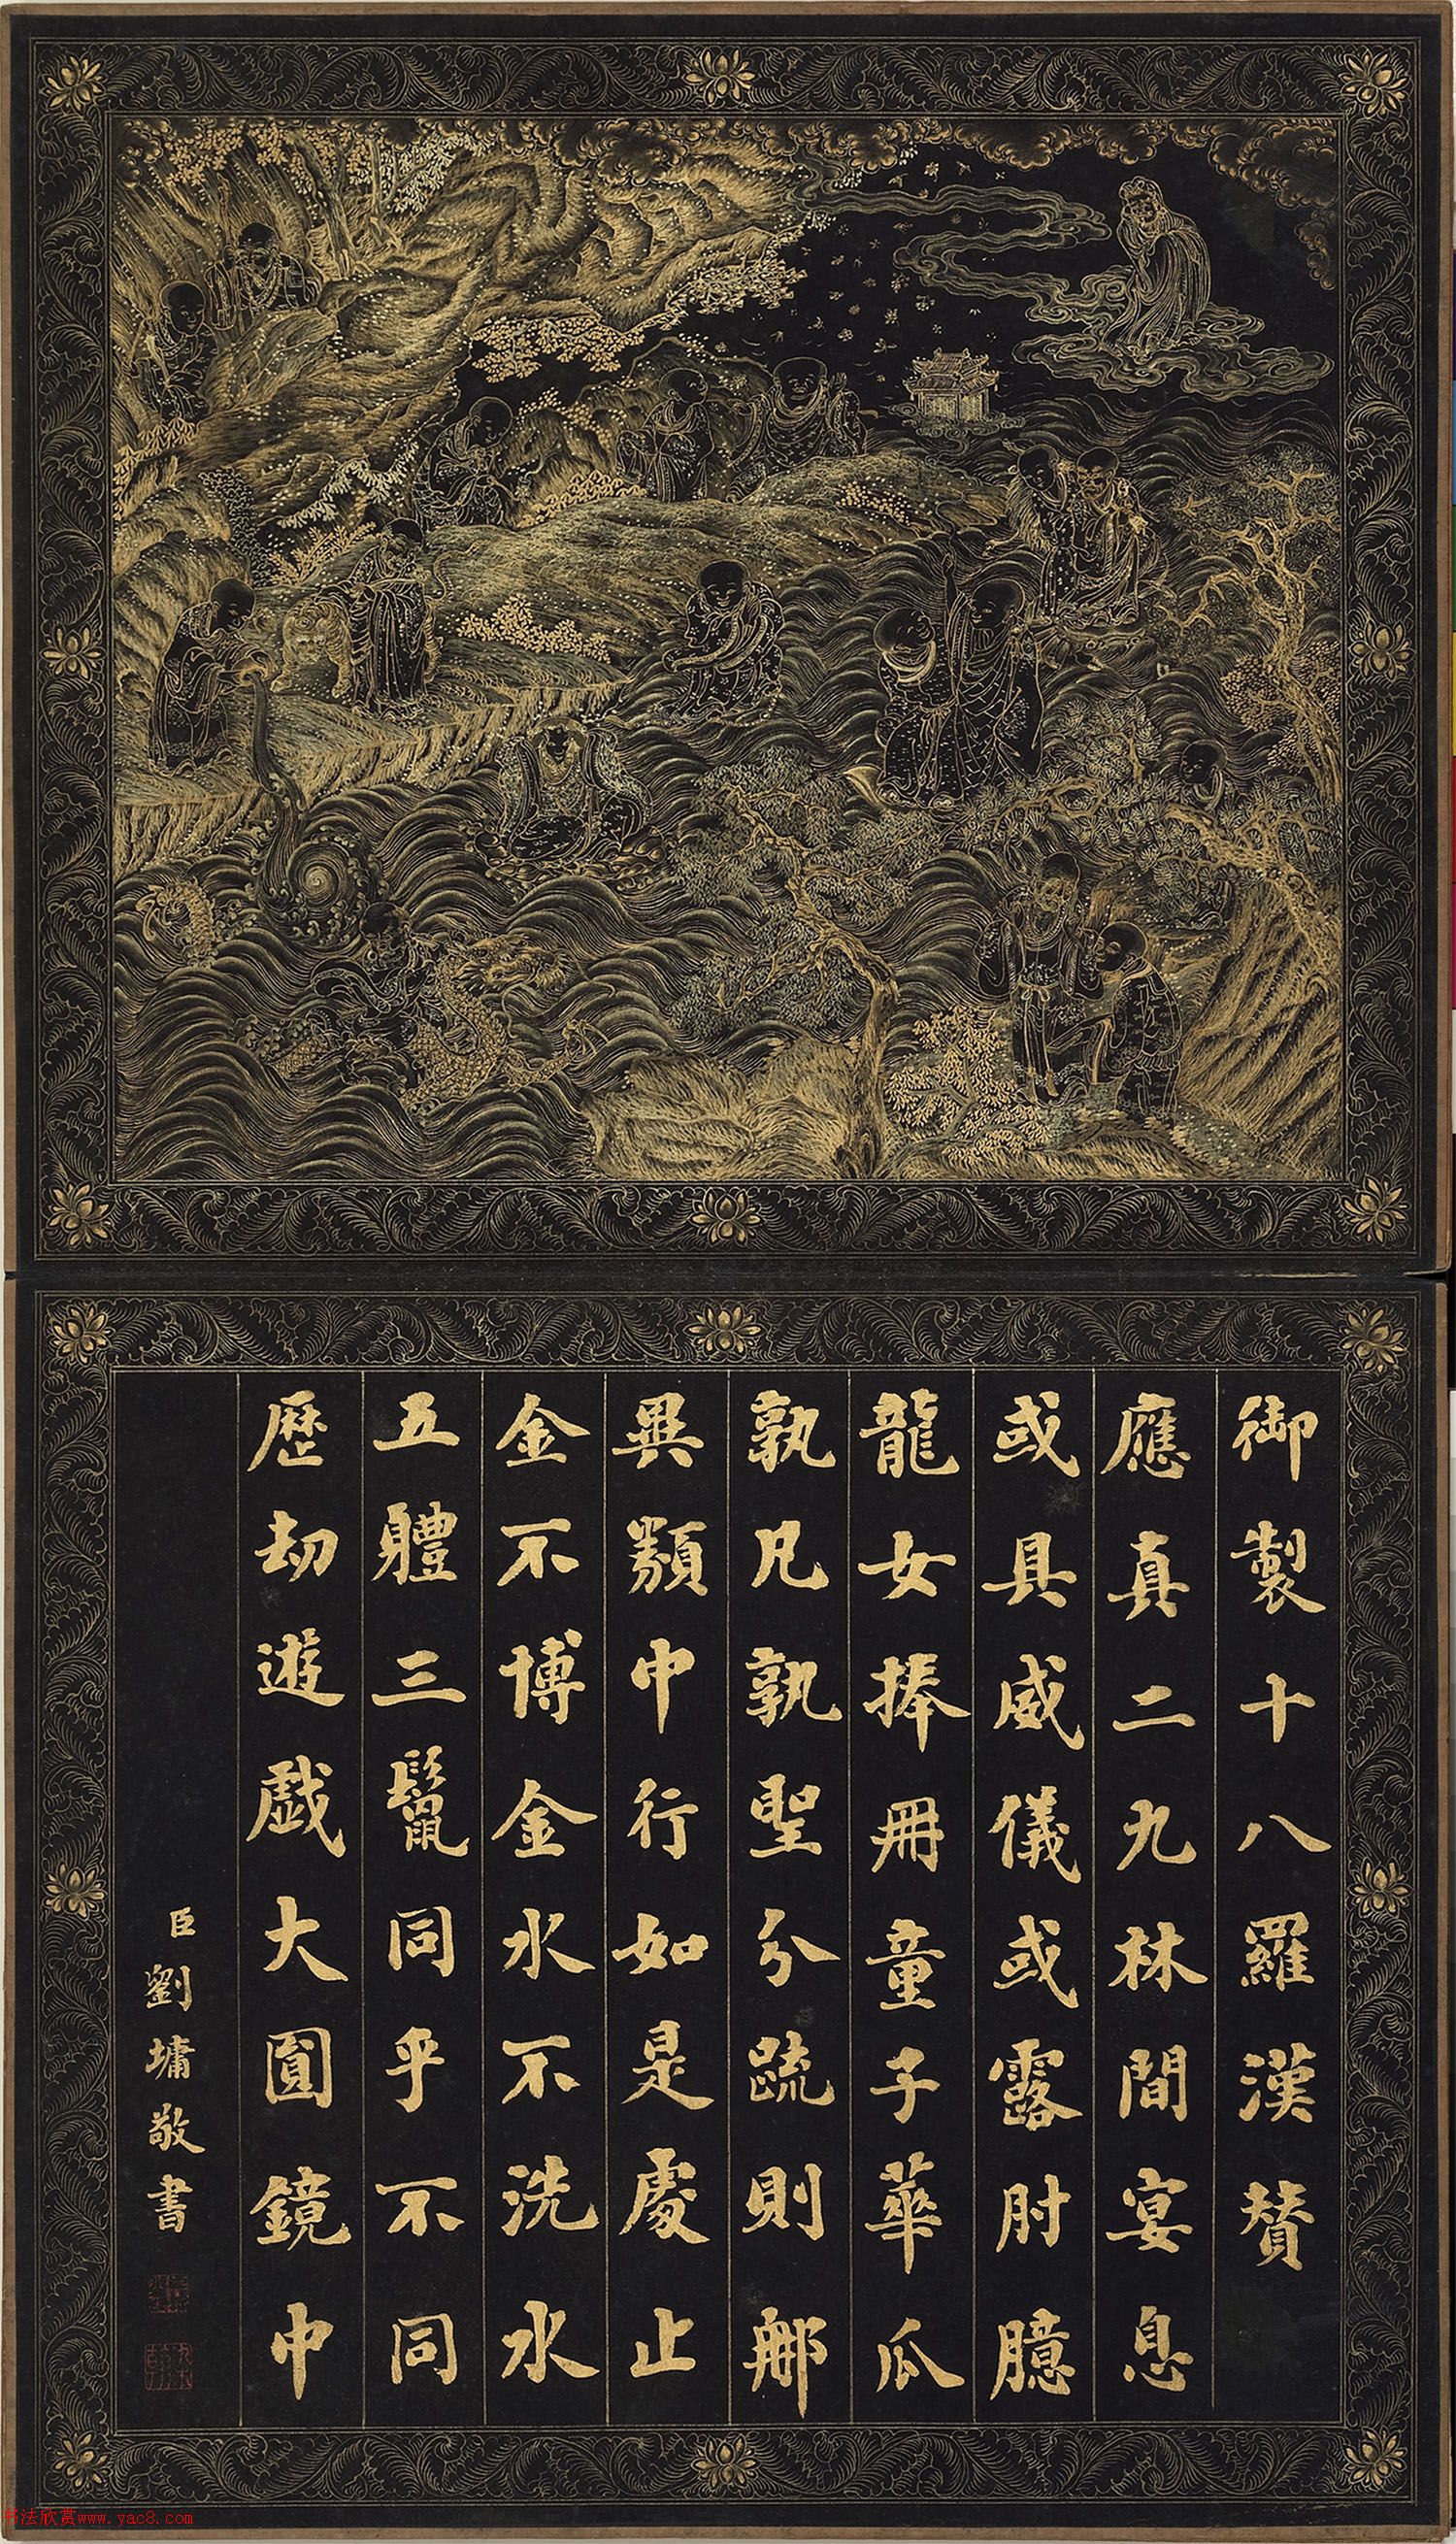 御製十八羅漢贊
應真二九林間宴息
或具威儀或露肘臆
龍女捧冊童子華瓜
孰凡孰聖分䟽則那
異類中行如是處止
金不博金水不洗水
五體三鬣同乎不同
歷劫遊戲大圓鏡中
臣劉墉敬書
书法欣赏www.yac8.com